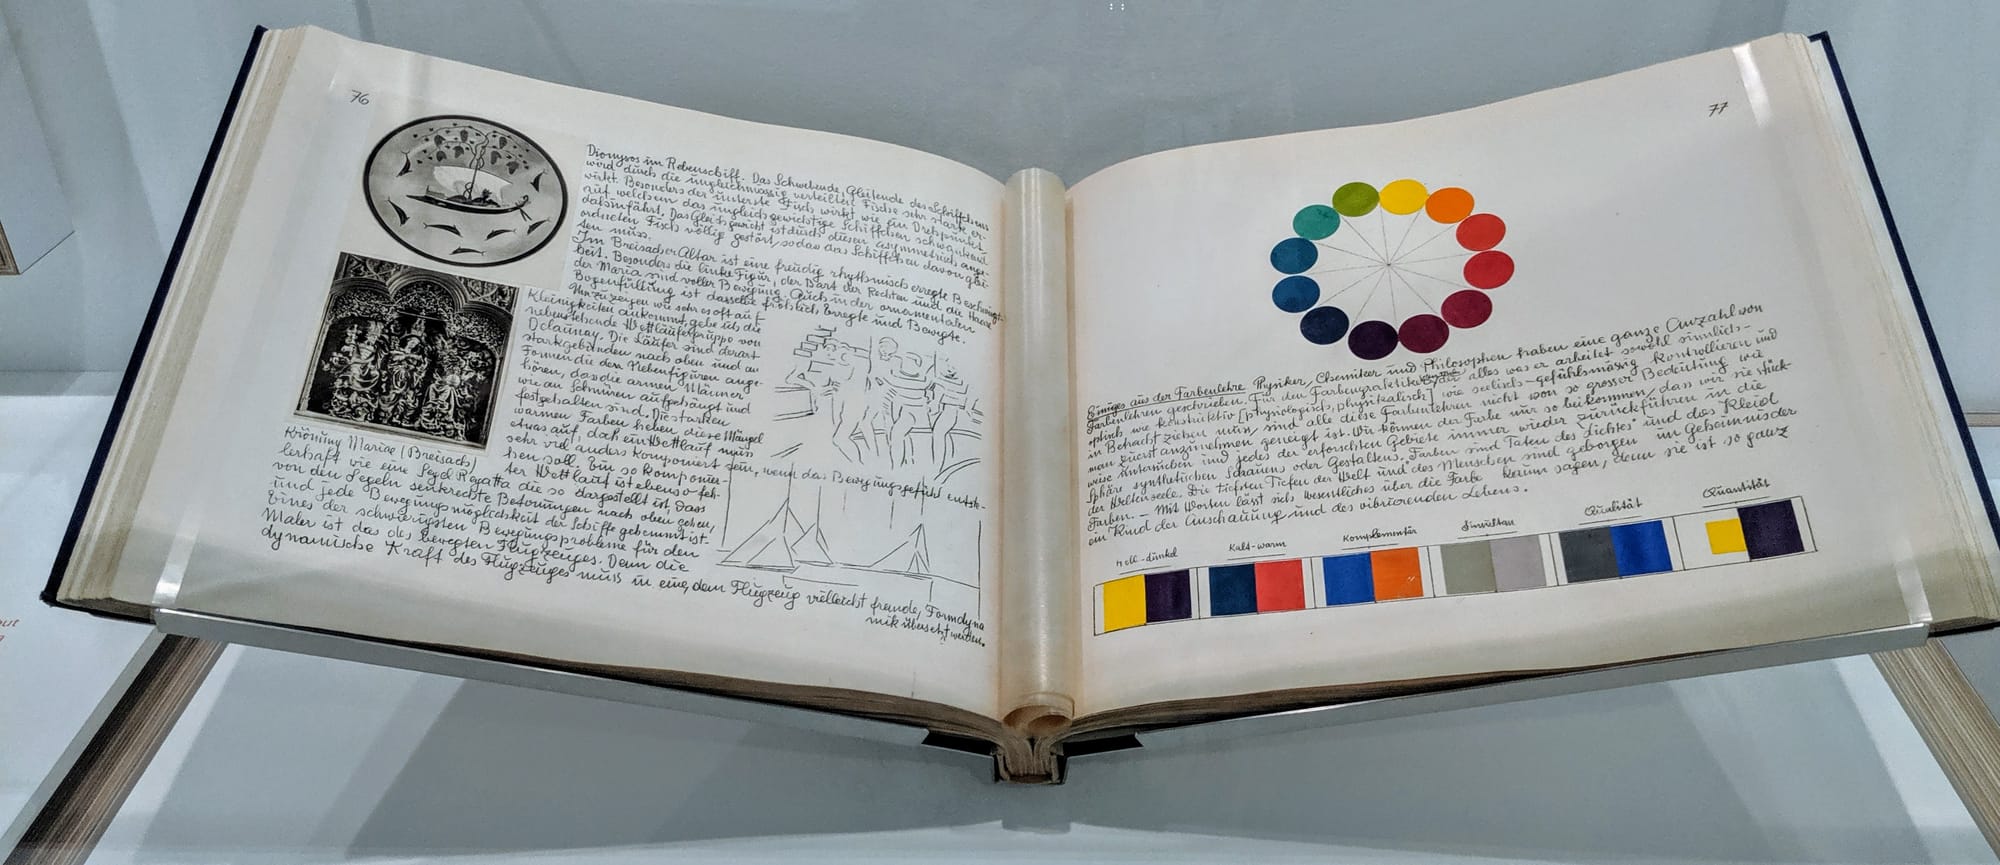 76
Dionysos im Rebenschiff. Das Schwebende, Gleitende des Schiffchens
wird durch die ungleichmässig verteilten Fische sehr stark er-
wirkt. Besonders der unterste Fisch wirkt wie ein Drehpunkt
auf welchem das ungleichgewichtige Schiffchen schwankend
dahinfährt. Das Gleichgewicht ist durch diesen asymmetrisch ange-
ordneten Fisch völlig gestört, sodass das Schiffchen davon glei-
ten muss.
Im Breisacher Altar ist eine freudig rhythmisch erregte Beschwingt-
heit. Besonders die linke Figur, der Bart der Rechten und die Haare
der Maria sind voller Bewegung. Auch in der ornamentalen
Bogenfüllung ist dasselbe fröhlich, Erregte und Bewegte.
Um zu zeigen wie sehr es oft auf
Kleinigkeiten ankommt, gebe ich die
nebenstehende Wettläufergruppe von
Delaunay. Die Läufer sind derart
stark gebunden nach oben und an
Formen die den Nebenfiguren ange-
hören, dass die armen Männer
wie an Schnüren aufgehängt und
festgehalten sind. Die starken
warmen Farben heben diese Mängel
etwas auf, doch ein Wettlauf muss
sehr viel anders komponiert sein, wenn das Bewegungsgefühl entste-
hen soll. Ein so komponier-
ter Wettlauf ist ebenso feh-
Krönung Mariae (Breisach)
lerhaft wie eine Segel Regatta die so dargestellt ist, dass
von den Segeln senkrechte Betonungen nach oben gehen,
und jede Bewegungsmöglichkeit der Schiffe gehemmt ist.
Eines der schwierigsten Bewegungsprobleme für den
Maler ist das des bewegten Flugzeuges. Denn die
dynamische Kraft des Flugzeuges muss in eine, dem Flugzeug vielleicht fremde, Formdyna
mik übersetzt werden.
77
Einiges aus der Farbenlehre. Physiker, Chemiker und Philosophen haben eine ganze Anzahl von
Farbenlehren geschrieben. Für den Farbenpraktiker, der alles was er arbeitet sowohl sinnlich-
optisch wie konstruktiv [physiologisch, physikalisch] wie seelisch-gefühlsmässig kontrollieren und
in Betracht ziehen muss, sind alle diese Farbenlehren nicht von so grosser Bedeutung wie
man zuerst anzunehmen geneigt ist. Wir können der Farbe nur so beikommen, dass wir sie stück-
weise untersuchen und jedes der erforschten Gebiete immer wieder zurückführen in die
Sphäre synthetischen Schauens oder Gestaltens. Farben sind Taten des Lichtes und das Kleid
der Weltenseele. Die tiefsten Tiefen der Welt und des Menschen sind geborgen im Geheimnis der
Farben. – Mit Worten lässt sich Wesentliches über die Farbe kaum sagen, denn sie ist so ganz
ein Kind der Anschauung und des vibrierenden Lebens.
Hell-dunkel
Kalt-warm
Komplementär
Simultan
Qualität
Quantität